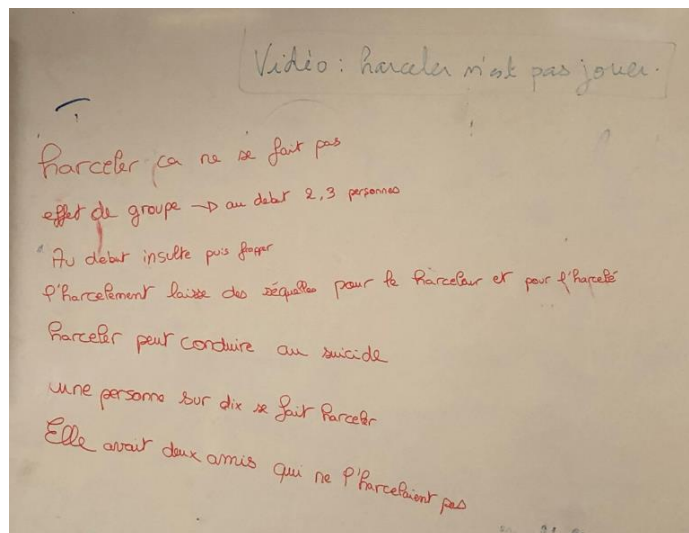 Vidéo : harceler n'est pas jouer.
harceler ça ne se fait pas
effet de groupe → au debut 2,3 personnes
Au debut insulte puis frapper
l'harcelement laisse des séquelles pour le harceleur et pour l'harcelé
harceler peut conduire au suicide
une personne sur dix se fait harceler
Elle avait deux amis qui ne l'harcelaient pas